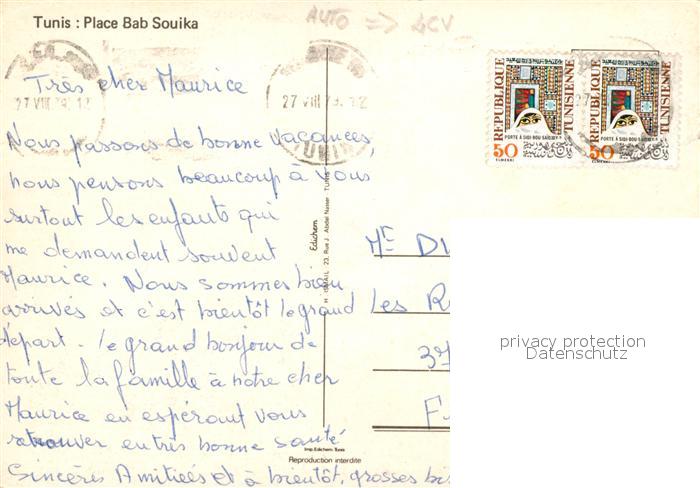 Tunis : Place Bab Souika
AUTO => 4CV
27 VIII 79. 12
27 VIII 79. 12
TUNIS
REPUBLIQUE TUNISIENNE
PORTE A SIDI BOU SAID
50
ELMEKKI
REPUBLIQUE TUNISIENNE
PORTE A SIDI BOU SAID
50
Très cher Maurice
Nous passons de bonne vacances,
nous pensons beaucoup à vous
surtout les enfants qui
me demandent souvent
Maurice. Nous sommes bien
arrivés et c'est bientôt le grand
départ. le grand bonjour de
toute la famille à notre cher
Maurice en espérant vous
retrouver en très bonne santé
Sincères Amitiées et à bientôt, grosses bis
Edichem
H. ISMAIL 23, Rue J. Abdel Nasser - TUNIS
Imp. Edichem Tunis
Reproduction interdite
ME DU
les R
37
F
privacy protection
Datenschutz